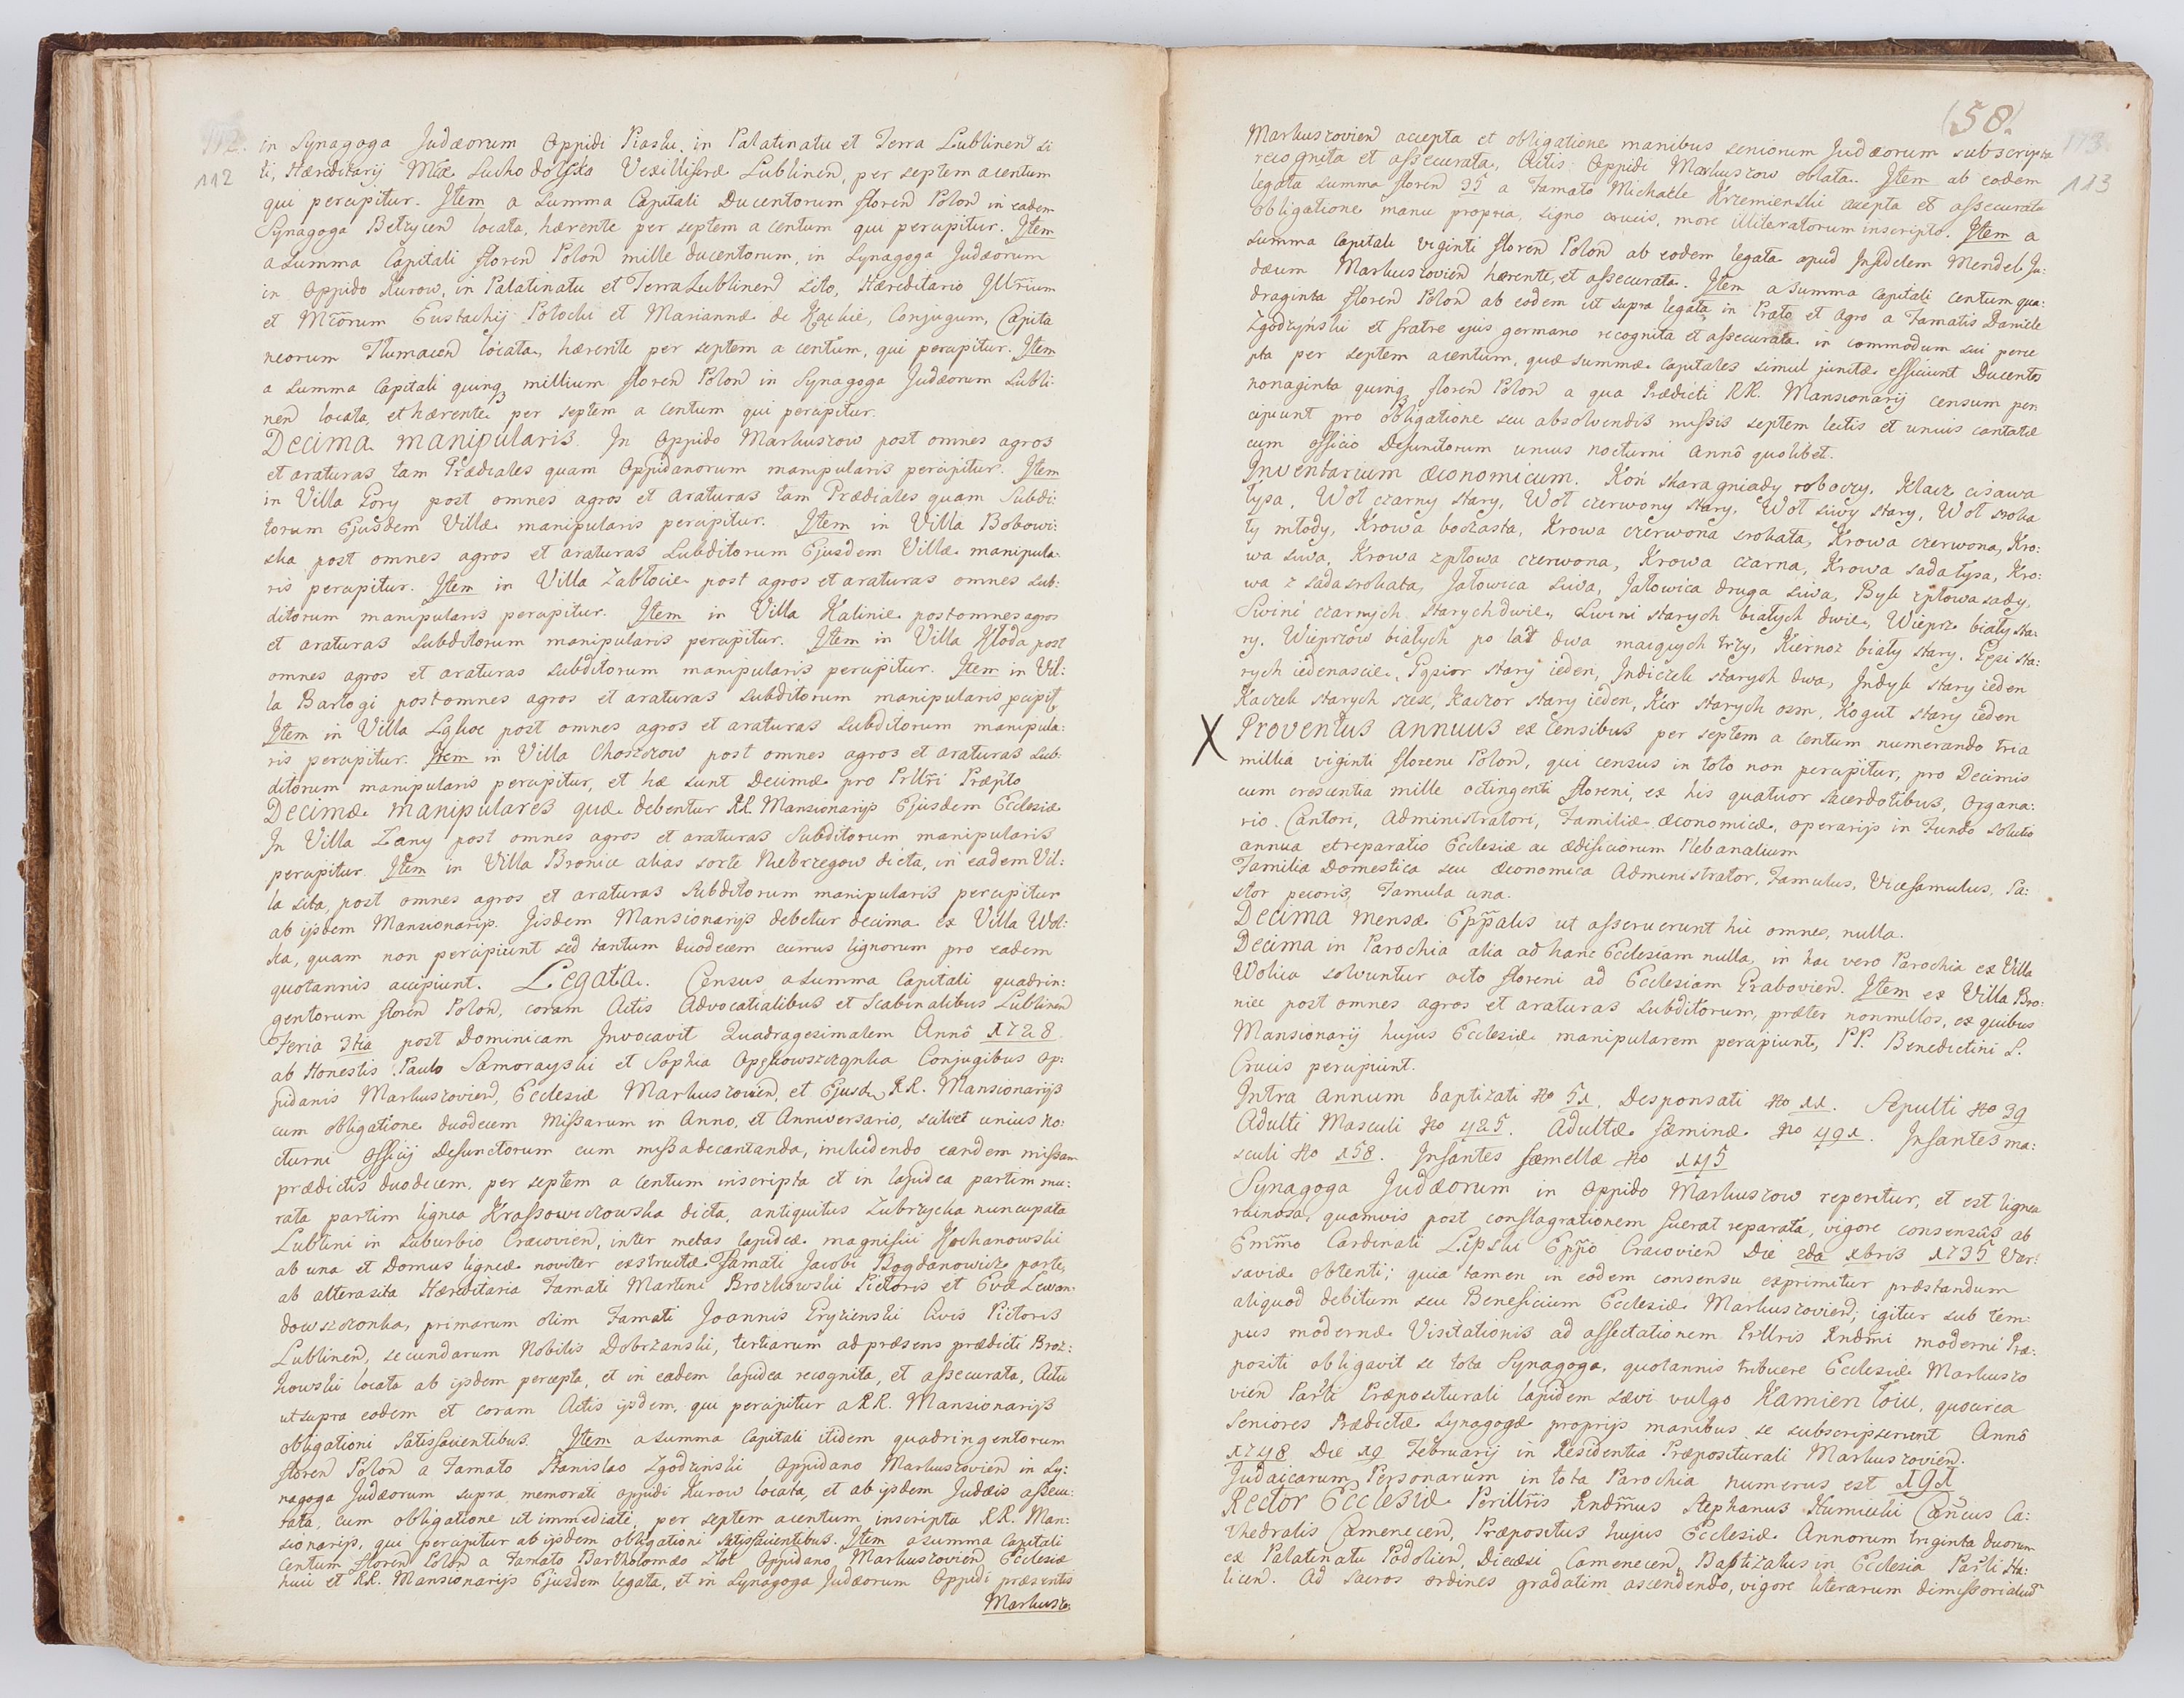 112. in Synagoga Judæorum Oppidi Piaski, in Palatinatu et Terra Lublinen si
112
ti, Hæreditarij Mcæ Suchodolska Vexilliferæ Lublinen, per septem a centum
qui percipitur. Item a Summa Capitali Ducentorum floren Polon in eadem
Synagoga Betzycen locata, hærente per septem a centum qui percipitur. Item
a Summa Capitali floren Polon mille ducentorum, in Synagoga Judæorum
in Oppido Kurow, in Palatinatu et Terra Lublinen sito, Hæreditario Illrium
et Mcorum Eustachij Potocki et Mariannæ de Kątkie, Conjugum, Capita
neorum Tlumacen locata, hærente per septem a centum, qui percipitur. Item
a Summa Capitali quinq millium floren Polon in Synagoga Judæorum Lubli:
nen locata, et hærente per septem a centum qui percipitur.
Decima manipularis. In Oppido Markuszow post omnes agros
et araturas tam Prædiales quam Oppidanorum manipularis percipitur. Item
in Villa Gory post omnes agros et araturas tam Prædiales quam Subdi:
torum Ejusdem Villæ manipularis percipitur. Item in Villa Bobowi:
ska post omnes agros et araturas Subditorum Ejusdem Villæ manipula:
ris percipitur. Item in Villa Zabłocie post agros et araturas omnes sub:
ditorum manipularis percipitur. Item in Villa Kalinie post omnes agros
et araturas subditorum manipularis percipitur. Item in Villa Kłoda post
omnes agros et araturas subditorum manipularis percipitur. Item in Vil:
la Barłogi post omnes agros et araturas subditorum manipularis pcipit
Item in Villa Łąkoc post omnes agros et araturas subditorum manipula:
ris percipitur. Item in Villa Choszczow post omnes agros et araturas sub:
ditorum manipularis percipitur, et hæ sunt Decimæ pro Prllri Præpto
Decimæ manipulares quæ debentur RR. Mansionarijs Ejusdem Ecclesiæ
In Villa Łany post omnes agros et araturas Subditorum manipularis
percipitur. Item in Villa Bronice alias sorte Niebrzegow dicta, in eadem Vil:
la sita, post omnes agros et araturas Subditorum manipularis percipitur
ab ijsdem Mansionarijs. Jisdem Mansionarijs debetur decima ex Villa Wol:
ka, quam non percipiunt sed tantum duodecem currus lignorum pro eadem
quotannis accipiunt. Legata. Census a Summa Capitali quadrin:
gentorum floren Polon, coram Actis Advocatialibus et Scabinalibus Lublinen
Feria 3tia post Dominicam Invocavit Quadragesimalem Annô 1728
ab Honestis Paulo Samorayski et Sophia Opękowszczanka Conjugibus Op:
pidanis Markuszovien, Ecclesiæ Markuszovien, et Ejusd. RR. Mansionarijs
cum obligatione duodecem Missarum in Anno, et Anniversario, scilicet unius no:
cturni Officij Defunctorum cum missa decantanda, includendo eandem missam
prædictis duodecem, per septem a centum inscripta et in lapidea partim mu:
rata partim lignea Krassowczowska dicta, antiquitus Zubrzycka nuncupata
Lublini in Suburbio Cracovien, inter metas lapideæ magnifici Kochanowski
ab una et Domus ligneæ noviter exstructæ Famati Jacobi Bogdanowicz parte,
ab altera sita Hæreditaria Famati Martini Brozkowski Pictoris et Evæ Lewan:
dowszczonka, primarum olim Famati Joannis Gryzienski Civis Pictoris
Lublinen, secundarum Nobilis Dobrzanski, tertiarum ad præsens prædicti Broz:
kowski locata ab ijsdem percepta, et in eadem lapidea recognita, et assecurata, Actu
ut supra eodem et coram Actis ijsdem, qui percipitur a RR. Mansionarijs
obligationi satisfacientibus. Item a Summa Capitali itidem quadringentorum
floren Polon a Famato Stanislao Zgodzinski Oppidano Markuszovien in Sy:
nagoga Judæorum supra memorati oppidi Kurow locata, et ab ijsdem Judæis assecu:
rata, cum obligatione ut immediati, per septem a centum, inscripta RR. Man:
sionarijs, qui percipitur ab ijsdem obligationi satisfacientibus. Item a summa Capitali
Centum Floren Polon a Famato Bartholomæo Oppidano Markuszovien Ecclesiæ
huic et RR. Mansionarijs Ejusdem legata, et in Synagoga Judæorum Oppidi præsentis
Markuszo
(58)
173.
113
Markuszovien accepta et obligatione manibus seniorum Judæorum subscripta
recognita et assecurata, Actis Oppidi Markuszow oblata. Item ab eodem
legata summa floren 35 a Famato Michaele Krzemienski accepta et assecurata
obligatione manu propria, signo crucis, more illiteratorum inscripto. Item a
summa Capitali viginti floren Polon ab eodem legata apud Infidelem Mendel Ju:
dæum Markuszovien hærente, et assecurata. Item a Summa Capitali centum qua:
draginta floren Polon ab eodem ut supra legata in Prato et Agro a Famatis Daniele
Zgodzyński et fratre ejus germano recognita et assecurata in commodum sui perce
pta per septem a centum, quæ summæ capitales simul junctæ efficiunt Ducentos
nonaginta quinq floren Polon a qua Prædicti RR. Mansionarij censum per
cipiunt pro obligatione seu absolvendis missis septem lectis et unius cantatæ
cum officio Defunctorum unius nocturni Annô quolibet.
Inventarium œconomicum. Koń skaragniady roboczy. Klacz cisawa
łysa, Woł czarny stary, Woł czerwony stary, Woł siwy stary, Woł sroka
ty młody, Krowa boczasta, Krowa czerwona srokata, Krowa czerwona, Kro:
wa siwa, Krowa zpłowa czerwona, Krowa czarna, Krowa sada łysa, Kro:
wa z sada srokata, Jałowica siwa, Jałowica druga siwa, Byk zpłowa sady.
Swini czarnych starych dwie, Swini starych białych dwie, Wieprz biały sta:
ry. Wieprzow białych po lat dwa maiących trzy, Kiernoz biały stary. Gęsi sta:
rych iedenascie, Gąsior stary ieden, Indiczek starych dwa, Indyk stary ieden
Kaczek starych szesc, Kaczor stary ieden, Kur starych osm, Kogut stary ieden
X Proventus annuus ex Censibus per septem a centum numerando tria
millia viginti floreni Polon, qui census in toto non percipitur, pro Decimis
cum crescentia mille octingenti floreni, ex his quatuor sacerdotibus, Organa:
rio. Cantori, Administratori, Familiæ œconomicæ, operarijs in Fundo solutio
annua et reparatio Ecclesiæ ac ædificiorum Plebanalium
Familia Domestica seu œconomica Administrator, Famulus, Vicefamulus, Pa:
stor pecoris, Famula una.
Decima mensæ Eppalis ut asseruerunt hic omnes, nulla.
Decima in Parochia alia ad hanc Ecclesiam nulla, in hac vero Parochia ex Villa
Wolica solvuntur octo floreni ad Ecclesiam Grabovien. Item ex Villa Bro:
nice post omnes agros et araturas subditorum, præter nonnullos, ex quibus
Mansionarij hujus Ecclesiæ manipularem percipiunt, PP. Benedictini S.
Crucis percipiunt.
Intra annum baptizati No 51. Desponsati No 11. Sepulti No 39
Adulti Masculi No 425. Adultæ fæminæ No 491. Infantes ma:
sculi No 158. Infantes fæmellæ No 145
Synagoga Judæorum in Oppido Markuszow reperitur, et est lignea
ruinosa, quamvis post conflagrationem fuerat reparata, vigore consensûs ab
Emmo Cardinali Lipski Eppo Cracovien Die 2da xbris 1735 Var:
saviæ obtenti; quia tamen in eodem consensu exprimitur præstandum
aliquod debitum seu Beneficium Ecclesiæ Markuszovien; igitur sub tem:
pus modernæ Visitationis ad affectationem Prllris Rndmi moderni Præ:
positi obligavit se tota Synagoga, quotannis tribuere Ecclesiæ Markuszo
vien Parli Præpositurali lapidem sævi vulgo Kamien łoiu, quocirca
Seniores Prædictæ Synagogæ proprijs manibus se subscripserunt Annô
1748 Die 19 Februarij in Residentia Præpositurali Markuszovien.
Judaicarum Personarum in tota Parochia numerus est 191
Rector Ecclesiæ Perillris Rndmus Stephanus Kumicki Cancus Ca:
thedralis Camenecen, Præpositus hujus Ecclesiæ Annorum triginta duorum
ex Palatinatu Podolien, Diœcesi Camenecen, Baptizatus in Ecclesia Parli Sta:
licen. Ad Sacros ordines gradatim ascendendo, vigore literarum dimissorialium